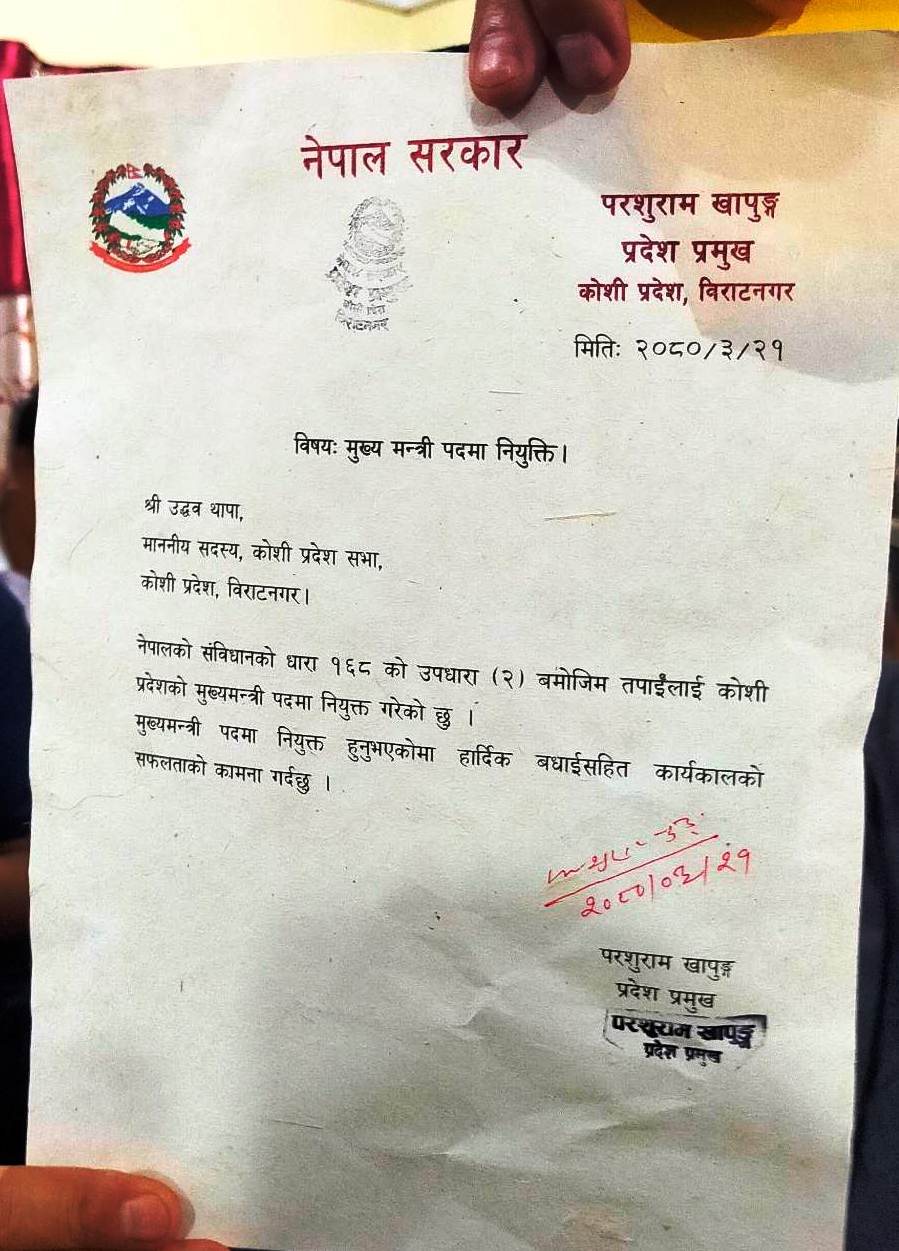 नेपाल सरकार
परशुराम खापुङ्ग
प्रदेश प्रमुख
कोशी प्रदेश, विराटनगर
विराटनगर
मितिः २०८०/३/२१
विषयः मुख्य मन्त्री पदमा नियुक्ति।
श्री उद्धव थापा,
माननीय सदस्य, कोशी प्रदेश सभा,
कोशी प्रदेश, विराटनगर।
नेपालको संविधानको धारा १६८ को उपधारा (२) बमोजिम तपाईंलाई कोशी
प्रदेशको मुख्यमन्त्री पदमा नियुक्त गरेको छु ।
मुख्यमन्त्री पदमा नियुक्त हुनुभएकोमा हार्दिक बधाईसहित कार्यकालको
सफलताको कामना गर्दछु ।
२०८०/०३/२१
परशुराम खापुङ्ग
प्रदेश प्रमुख
परशुराम खापुङ्ग
प्रदेश प्रमुख